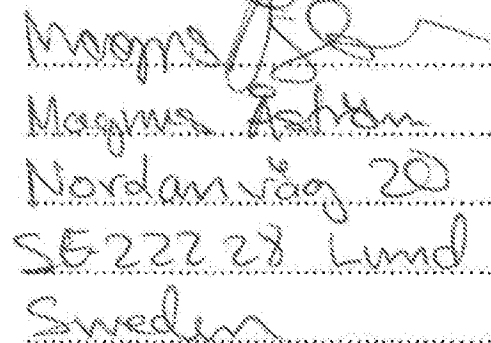 Magnus
Magnus Åström
Nordanväg 20
SE 222 28 Lund
Sweden